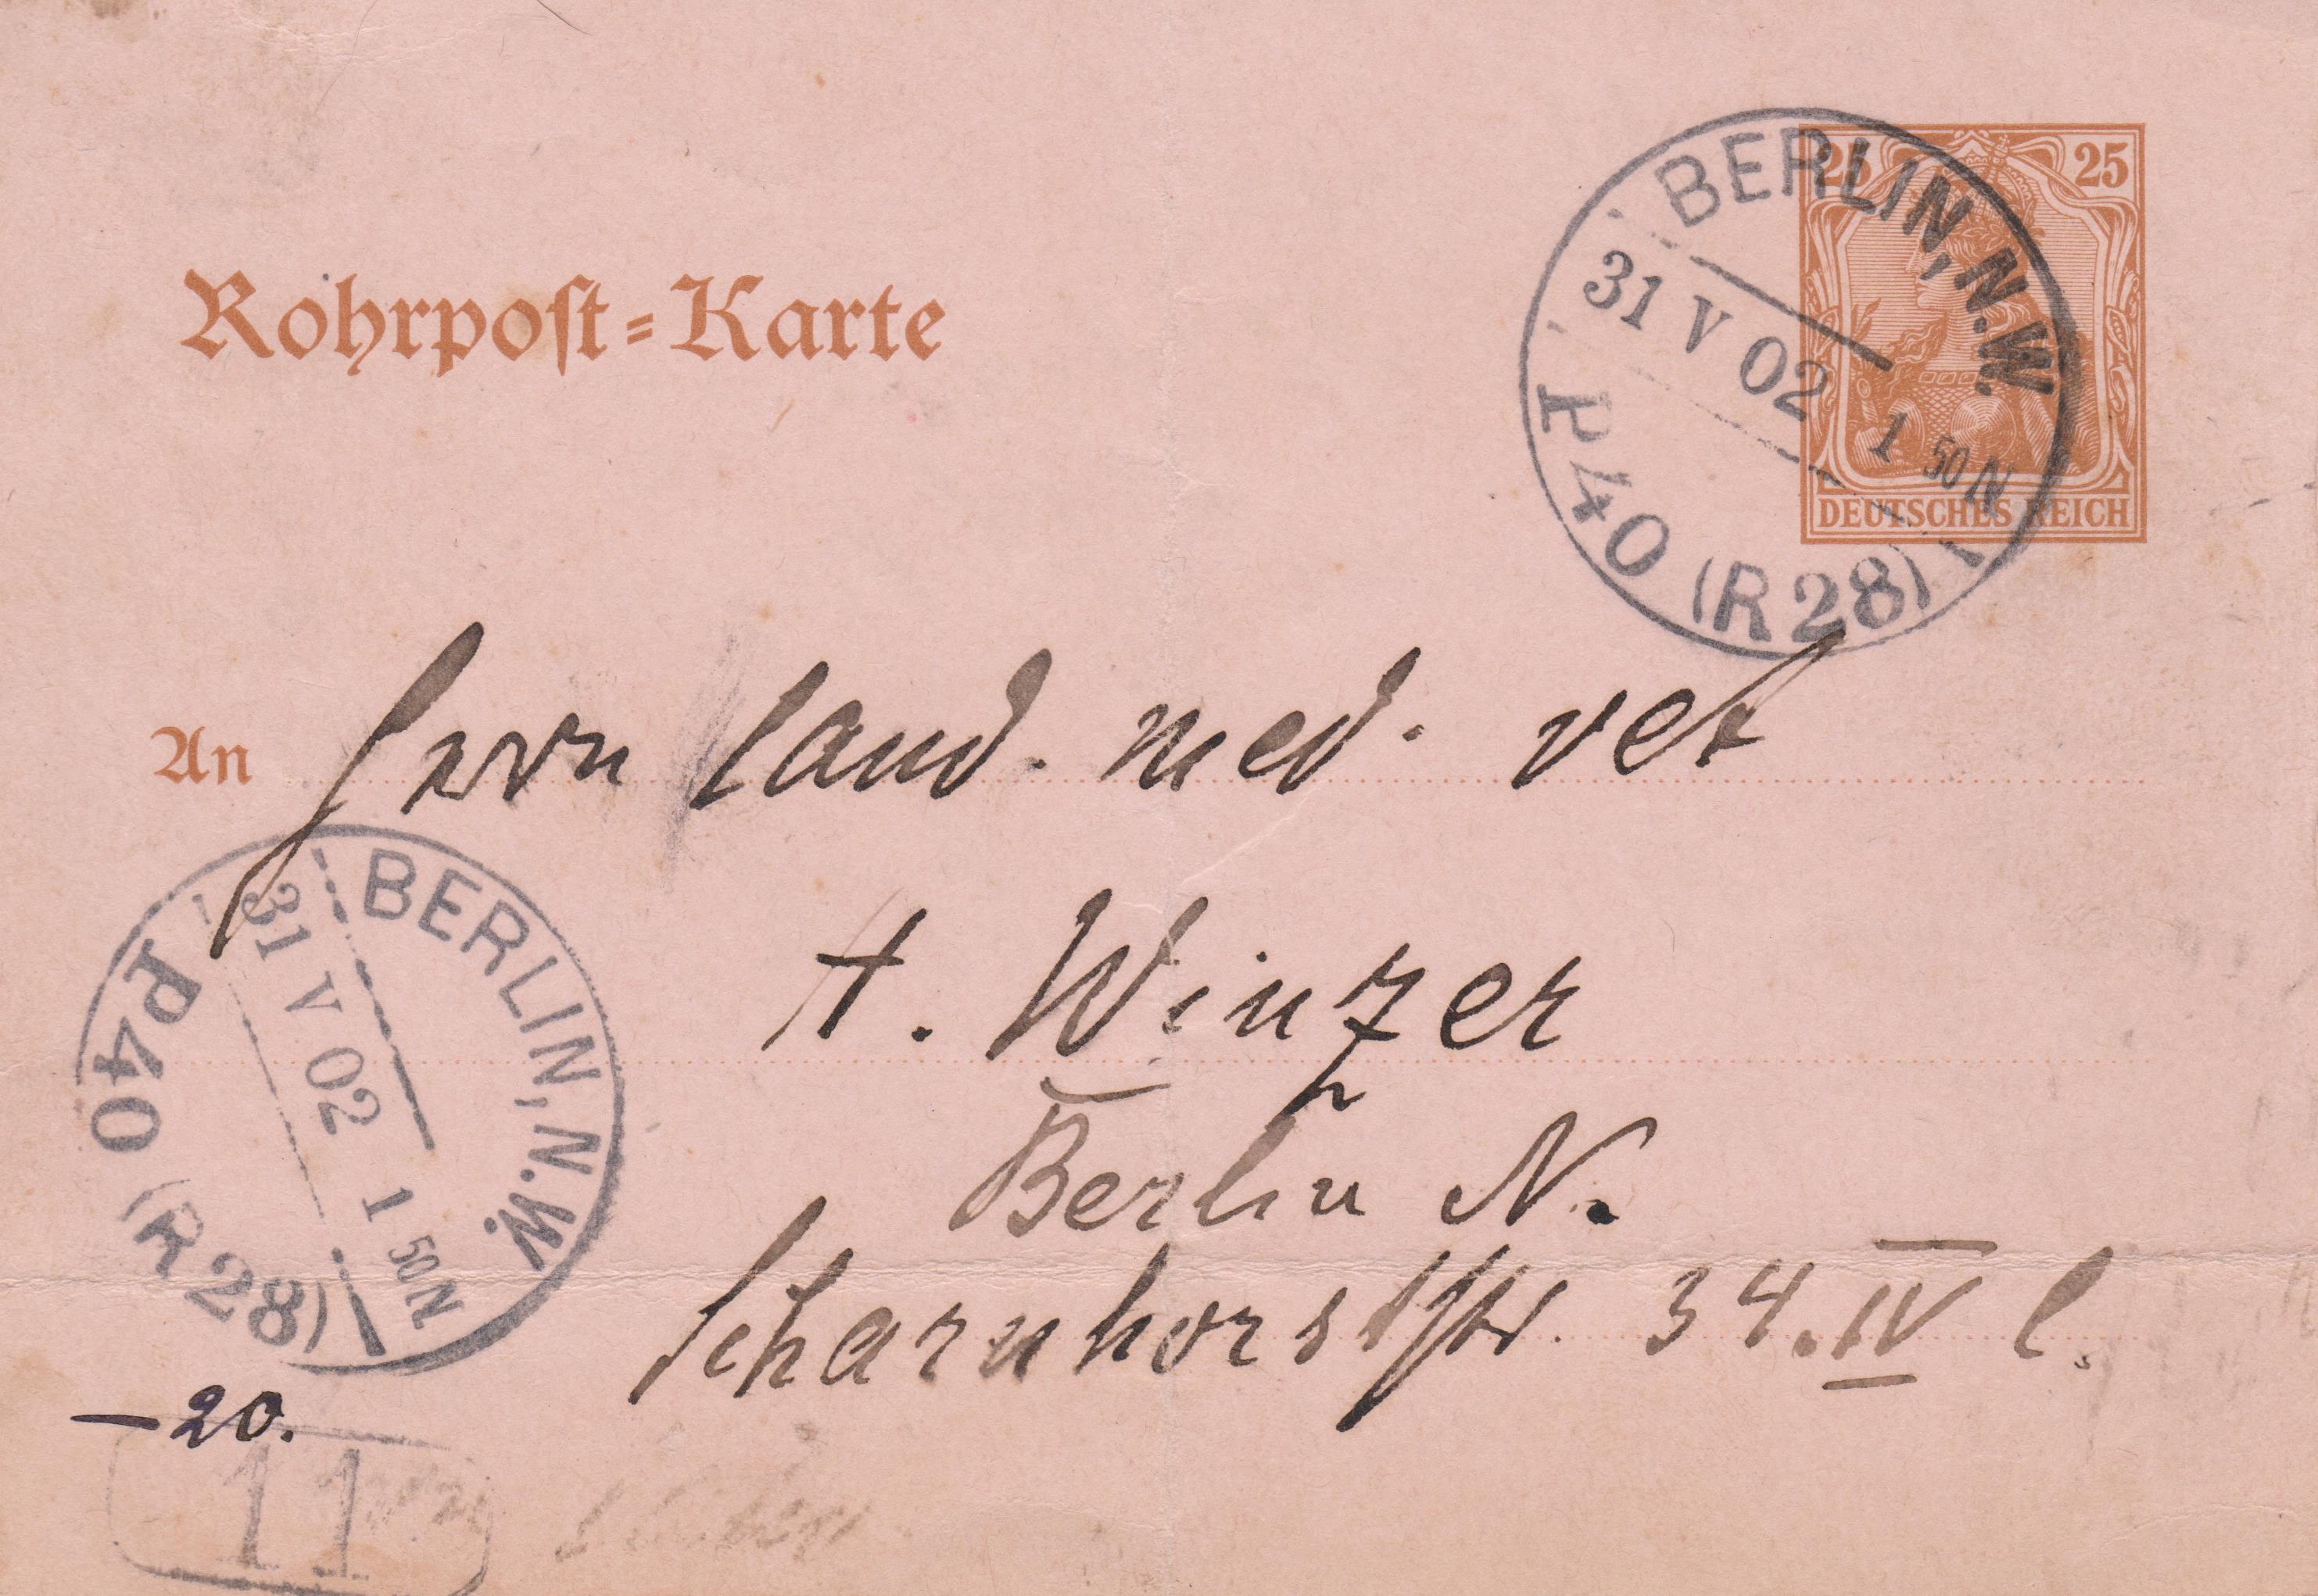 Rohrpost-Karte
25 25
DEUTSCHES REICH
BERLIN, N.W.
31 V 02 1 50 N
P40 (R28)
An Herrn Cand. med. vet
A. Winzer
Berlin N.
Scharnhorststr. 34. IV l.
BERLIN, N.W.
31 V 02 1 50 N
P40 (R28)
- 20.
11